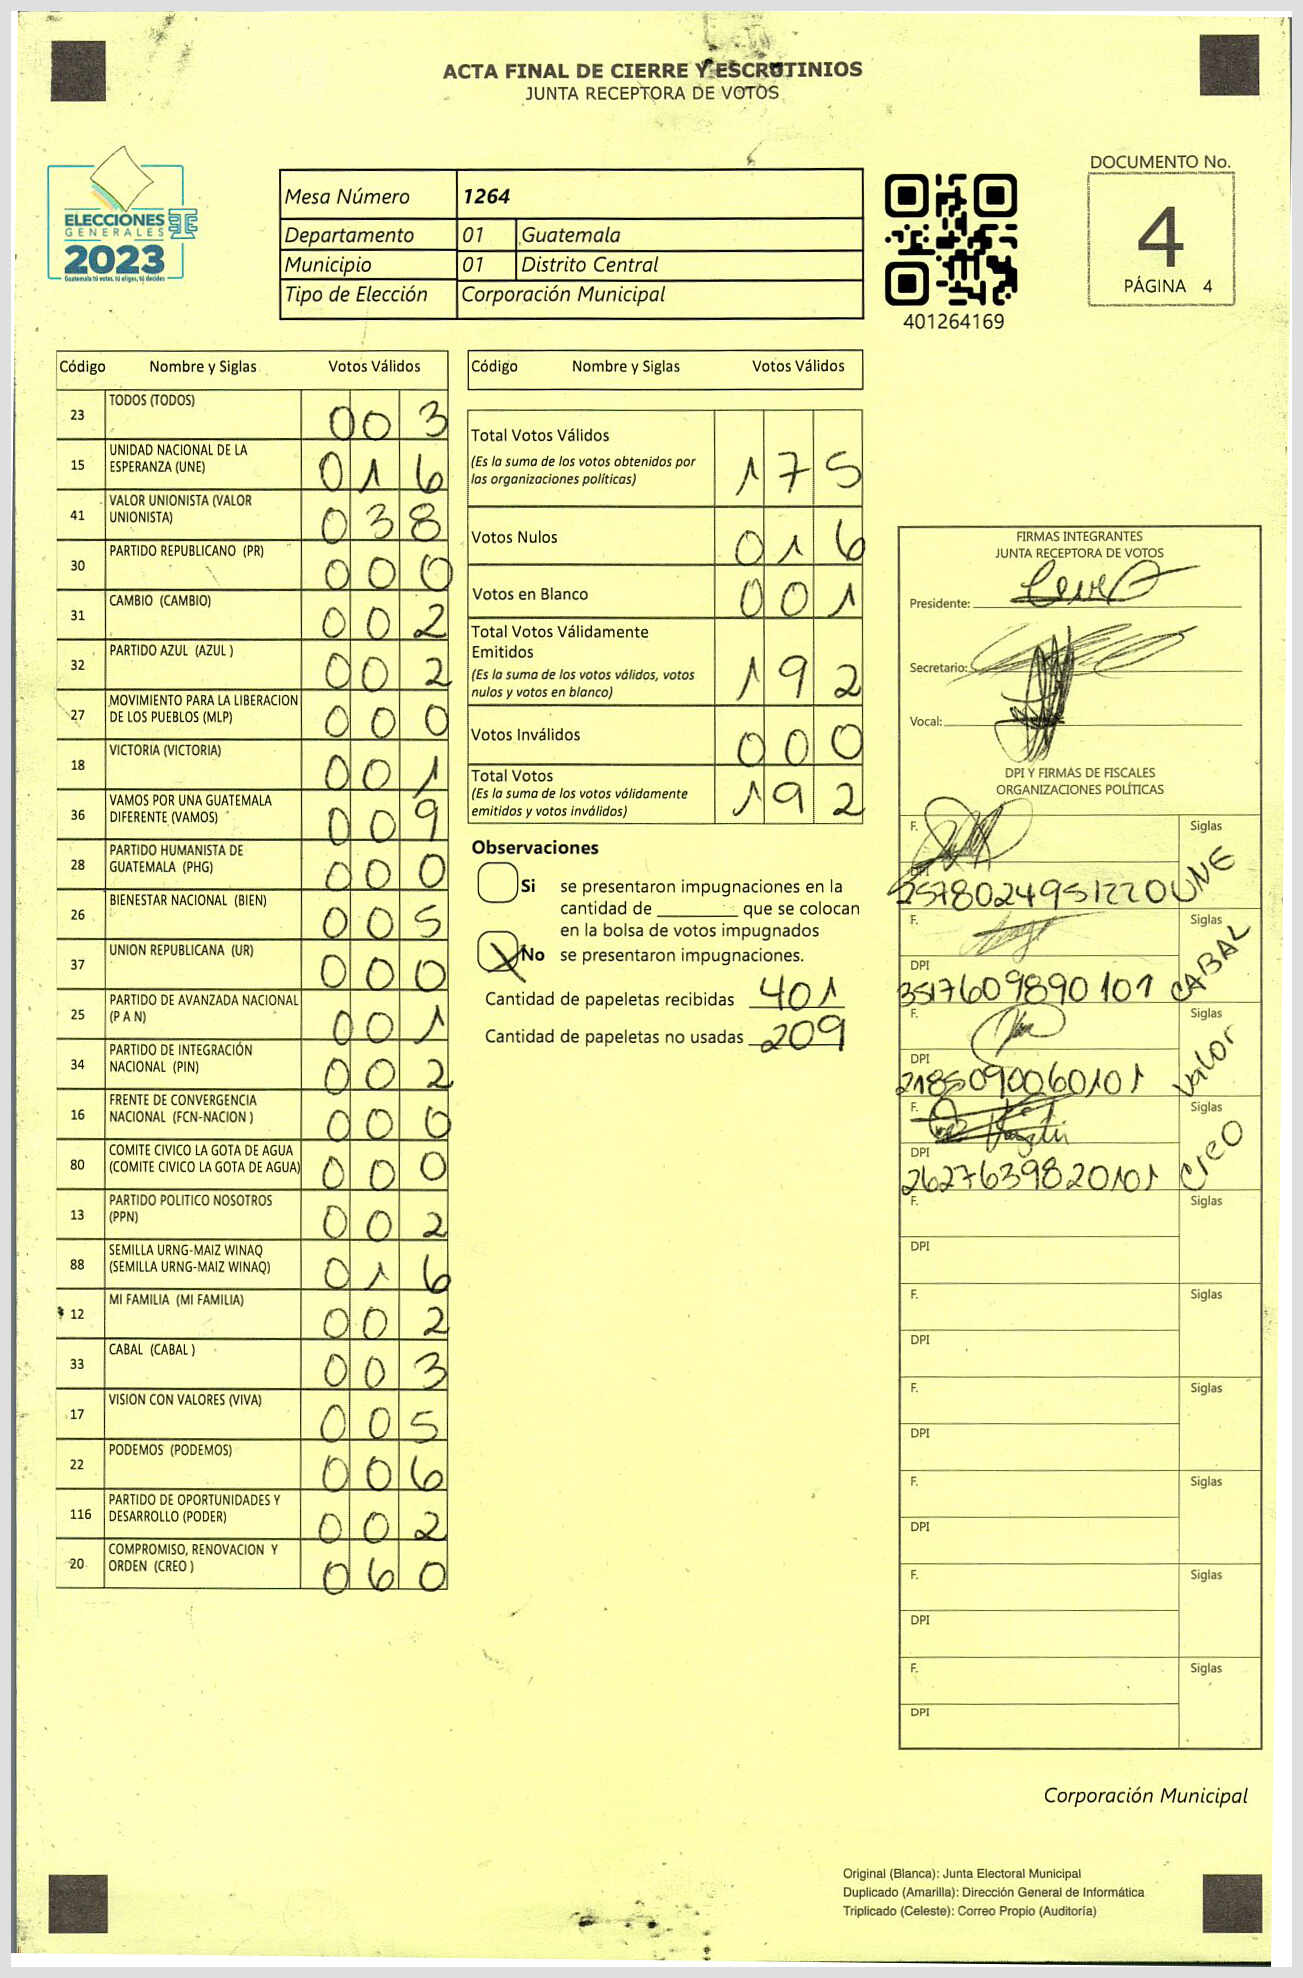 ACTA FINAL DE CIERRE Y ESCRUTINIOS
JUNTA RECEPTORA DE VOTOS
ELECCIONES
GENERALES
2023
Guatemala tú votas, tú eliges, tú decides
Mesa Número 1264
Departamento 01 Guatemala
Municipio 01 Distrito Central
Tipo de Elección Corporación Municipal
401264169
DOCUMENTO No.
4
PÁGINA 4
Código Nombre y Siglas Votos Válidos
23 TODOS (TODOS) 003
15 UNIDAD NACIONAL DE LA
ESPERANZA (UNE) 016
41 VALOR UNIONISTA (VALOR
UNIONISTA) 038
30 PARTIDO REPUBLICANO (PR) 000
31 CAMBIO (CAMBIO) 002
32 PARTIDO AZUL (AZUL ) 002
27 MOVIMIENTO PARA LA LIBERACION
DE LOS PUEBLOS (MLP) 000
18 VICTORIA (VICTORIA) 001
36 VAMOS POR UNA GUATEMALA
DIFERENTE (VAMOS) 009
28 PARTIDO HUMANISTA DE
GUATEMALA (PHG) 000
26 BIENESTAR NACIONAL (BIEN) 005
37 UNION REPUBLICANA (UR) 000
25 PARTIDO DE AVANZADA NACIONAL
(P A N) 001
34 PARTIDO DE INTEGRACIÓN
NACIONAL (PIN) 002
16 FRENTE DE CONVERGENCIA
NACIONAL (FCN-NACION ) 000
80 COMITE CIVICO LA GOTA DE AGUA
(COMITE CIVICO LA GOTA DE AGUA) 000
13 PARTIDO POLITICO NOSOTROS
(PPN) 002
88 SEMILLA URNG-MAIZ WINAQ
(SEMILLA URNG-MAIZ WINAQ) 016
12 MI FAMILIA (MI FAMILIA) 002
33 CABAL (CABAL ) 003
17 VISION CON VALORES (VIVA) 005
22 PODEMOS (PODEMOS) 006
116 PARTIDO DE OPORTUNIDADES Y
DESARROLLO (PODER) 002
20 COMPROMISO, RENOVACION Y
ORDEN (CREO ) 060
Código Nombre y Siglas Votos Válidos
Total Votos Válidos
(Es la suma de los votos obtenidos por
las organizaciones políticas) 175
Votos Nulos 016
Votos en Blanco 001
Total Votos Válidamente
Emitidos
(Es la suma de los votos válidos, votos
nulos y votos en blanco) 192
Votos Inválidos 000
Total Votos
(Es la suma de los votos válidamente
emitidos y votos inválidos) 192
Observaciones
Si se presentaron impugnaciones en la
cantidad de ________ que se colocan
en la bolsa de votos impugnados
No se presentaron impugnaciones.
Cantidad de papeletas recibidas 401
Cantidad de papeletas no usadas 209
FIRMAS INTEGRANTES
JUNTA RECEPTORA DE VOTOS
Presidente:
Secretario:
Vocal:
DPI Y FIRMAS DE FISCALES
ORGANIZACIONES POLÍTICAS
F. Siglas
DPI 2578024951220 UNE
F. Siglas
DPI
3517609890101 CABAL
F. Siglas
DPI
2185090060101 Valor
F. Siglas
DPI
2627639820101 CreO
F. Siglas
DPI
F. Siglas
DPI
F. Siglas
DPI
F. Siglas
DPI
F. Siglas
DPI
F. Siglas
DPI
Corporación Municipal
Original (Blanca): Junta Electoral Municipal
Duplicado (Amarilla): Dirección General de Informática
Triplicado (Celeste): Correo Propio (Auditoría)